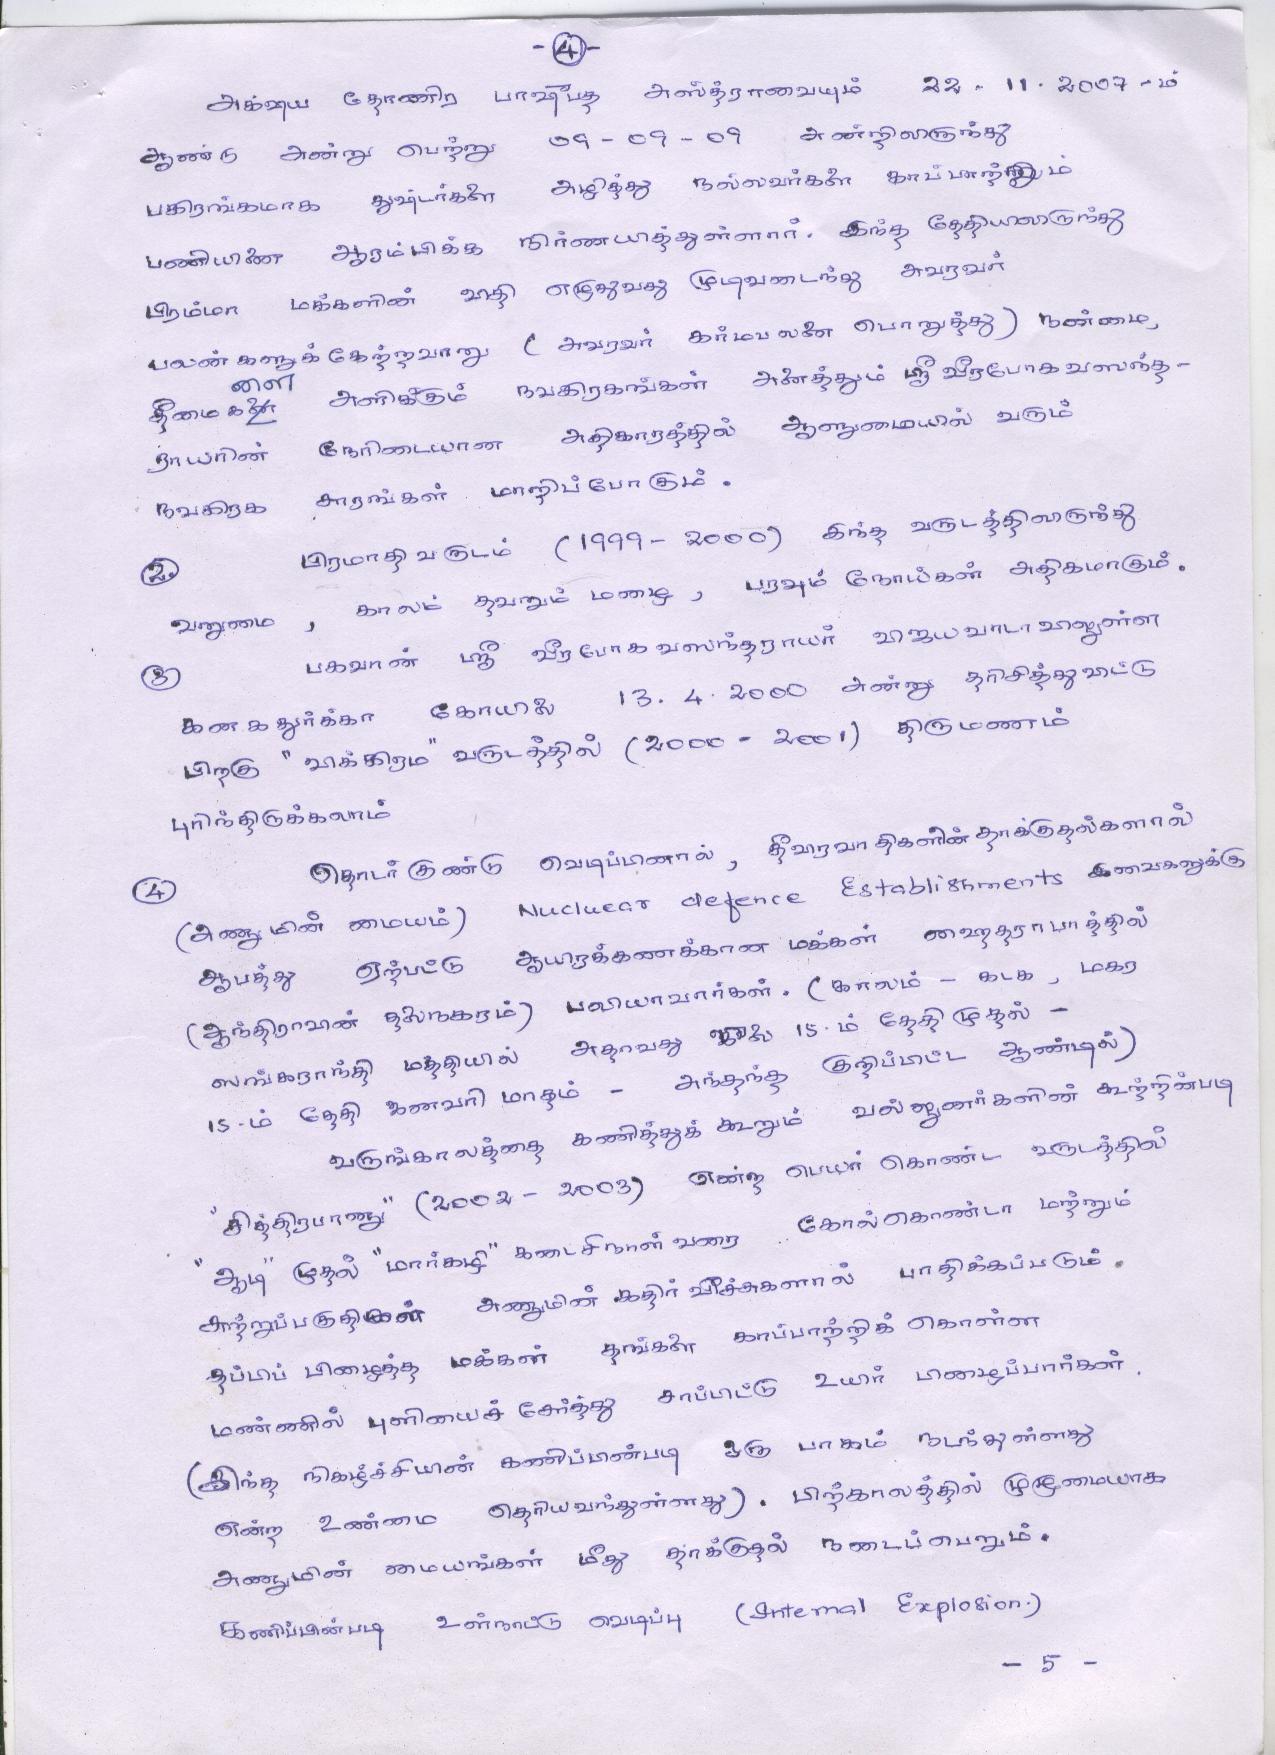 - 4 -
அக்ஷய தோணிர பாஷீபத அஸ்த்ராவையும் 22 - 11 . 2007 -ம்
ஆண்டு அன்று பெற்று 09 - 09 - 09 அன்றிலிருந்து
பகிரங்கமாக துஷ்டர்களை அழித்து நல்லவர்களை காப்பாற்றும்
பணியினை ஆரம்பிக்க நிர்ணயித்துள்ளார். இந்த தேதியிலிருந்து
பிரம்மா மக்களின் விதி எழுதுவது முடிவடைந்து அவரவர்
பலன்களுக்கேற்றவாறு ( அவரவர் கர்மபலனை பொறுத்து ) நன்மை,
தீமைகளை அளிக்கும் நவகிரகங்கள் அனைத்தும் ஸ்ரீ வீரபோக வஸந்த -
ராயரின் நேரிடையான அதிகாரத்தில் ஆளுமையில் வரும்
நவகிரக சாரங்கள் மாறிப்போகும்.
2. பிரமாதி வருடம் (1999 - 2000) இந்த வருடத்திலிருந்து
வறுமை , காலம் தவறும் மழை , பரவும் நோய்கள் அதிகமாகும்.
3 பகவான் ஸ்ரீ வீரபோக வஸந்தராயர் விஜயவாடாவிலுள்ள
கனகதுர்க்கா கோயில் 13. 4. 2000 அன்று தரிசித்துவிட்டு
பிறகு " விக்கிரம" வருடத்தில் (2000 - 2001) திருமணம்
புரிந்திருக்கலாம்
4 தொடர் குண்டு வெடிப்பினால் , தீவிரவாதிகளின் தாக்குதல்களால்
(அணுமின் மையம்) Nucluear defence Establishments இவைகளுக்கு
ஆபத்து ஏற்பட்டு ஆயிரக்கணக்கான மக்கள் ஹைதராபாத்தில்
(ஆந்திராவின் தலைநகரம்) பலியாவார்கள். (காலம் - கடக , மகர
ஸங்கராந்தி மத்தியில் அதாவது ஜூலை 15-ம் தேதி முதல் -
15-ம் தேதி ஜனவரி மாதம் - அந்தந்த குறிப்பிட்ட ஆண்டில்)
வருங்காலத்தை கணித்துக் கூறும் வல்லுனர்களின் கூற்றின்படி
"சித்திரபானு" (2002 - 2003) என்ற பெயர் கொண்ட வருடத்தில்
"ஆடி" முதல் "மார்கழி" கடைசிநாள் வரை கோல்கொண்டா மற்றும்
சுற்றுப்பகுதிகள் அணுமின் கதிர் வீச்சுகளால் பாதிக்கப்படும்.
தப்பிப் பிழைத்த மக்கள் தங்களை காப்பாற்றிக் கொள்ள
மண்ணில் புளியைச் சேர்த்து சாப்பிட்டு உயிர் பிழைப்பார்கள்.
(இந்த நிகழ்ச்சியின் கணிப்பின்படி ஒரு பாகம் நடந்துள்ளது
என்ற உண்மை தெரியவந்துள்ளது). பிற்காலத்தில் முழுமையாக
அணுமின் மையங்கள் மீது தாக்குதல் நடைப்பெறும்.
கணிப்பின்படி உள்நாட்டு வெடிப்பு (Internal Explosion.)
- 5 -